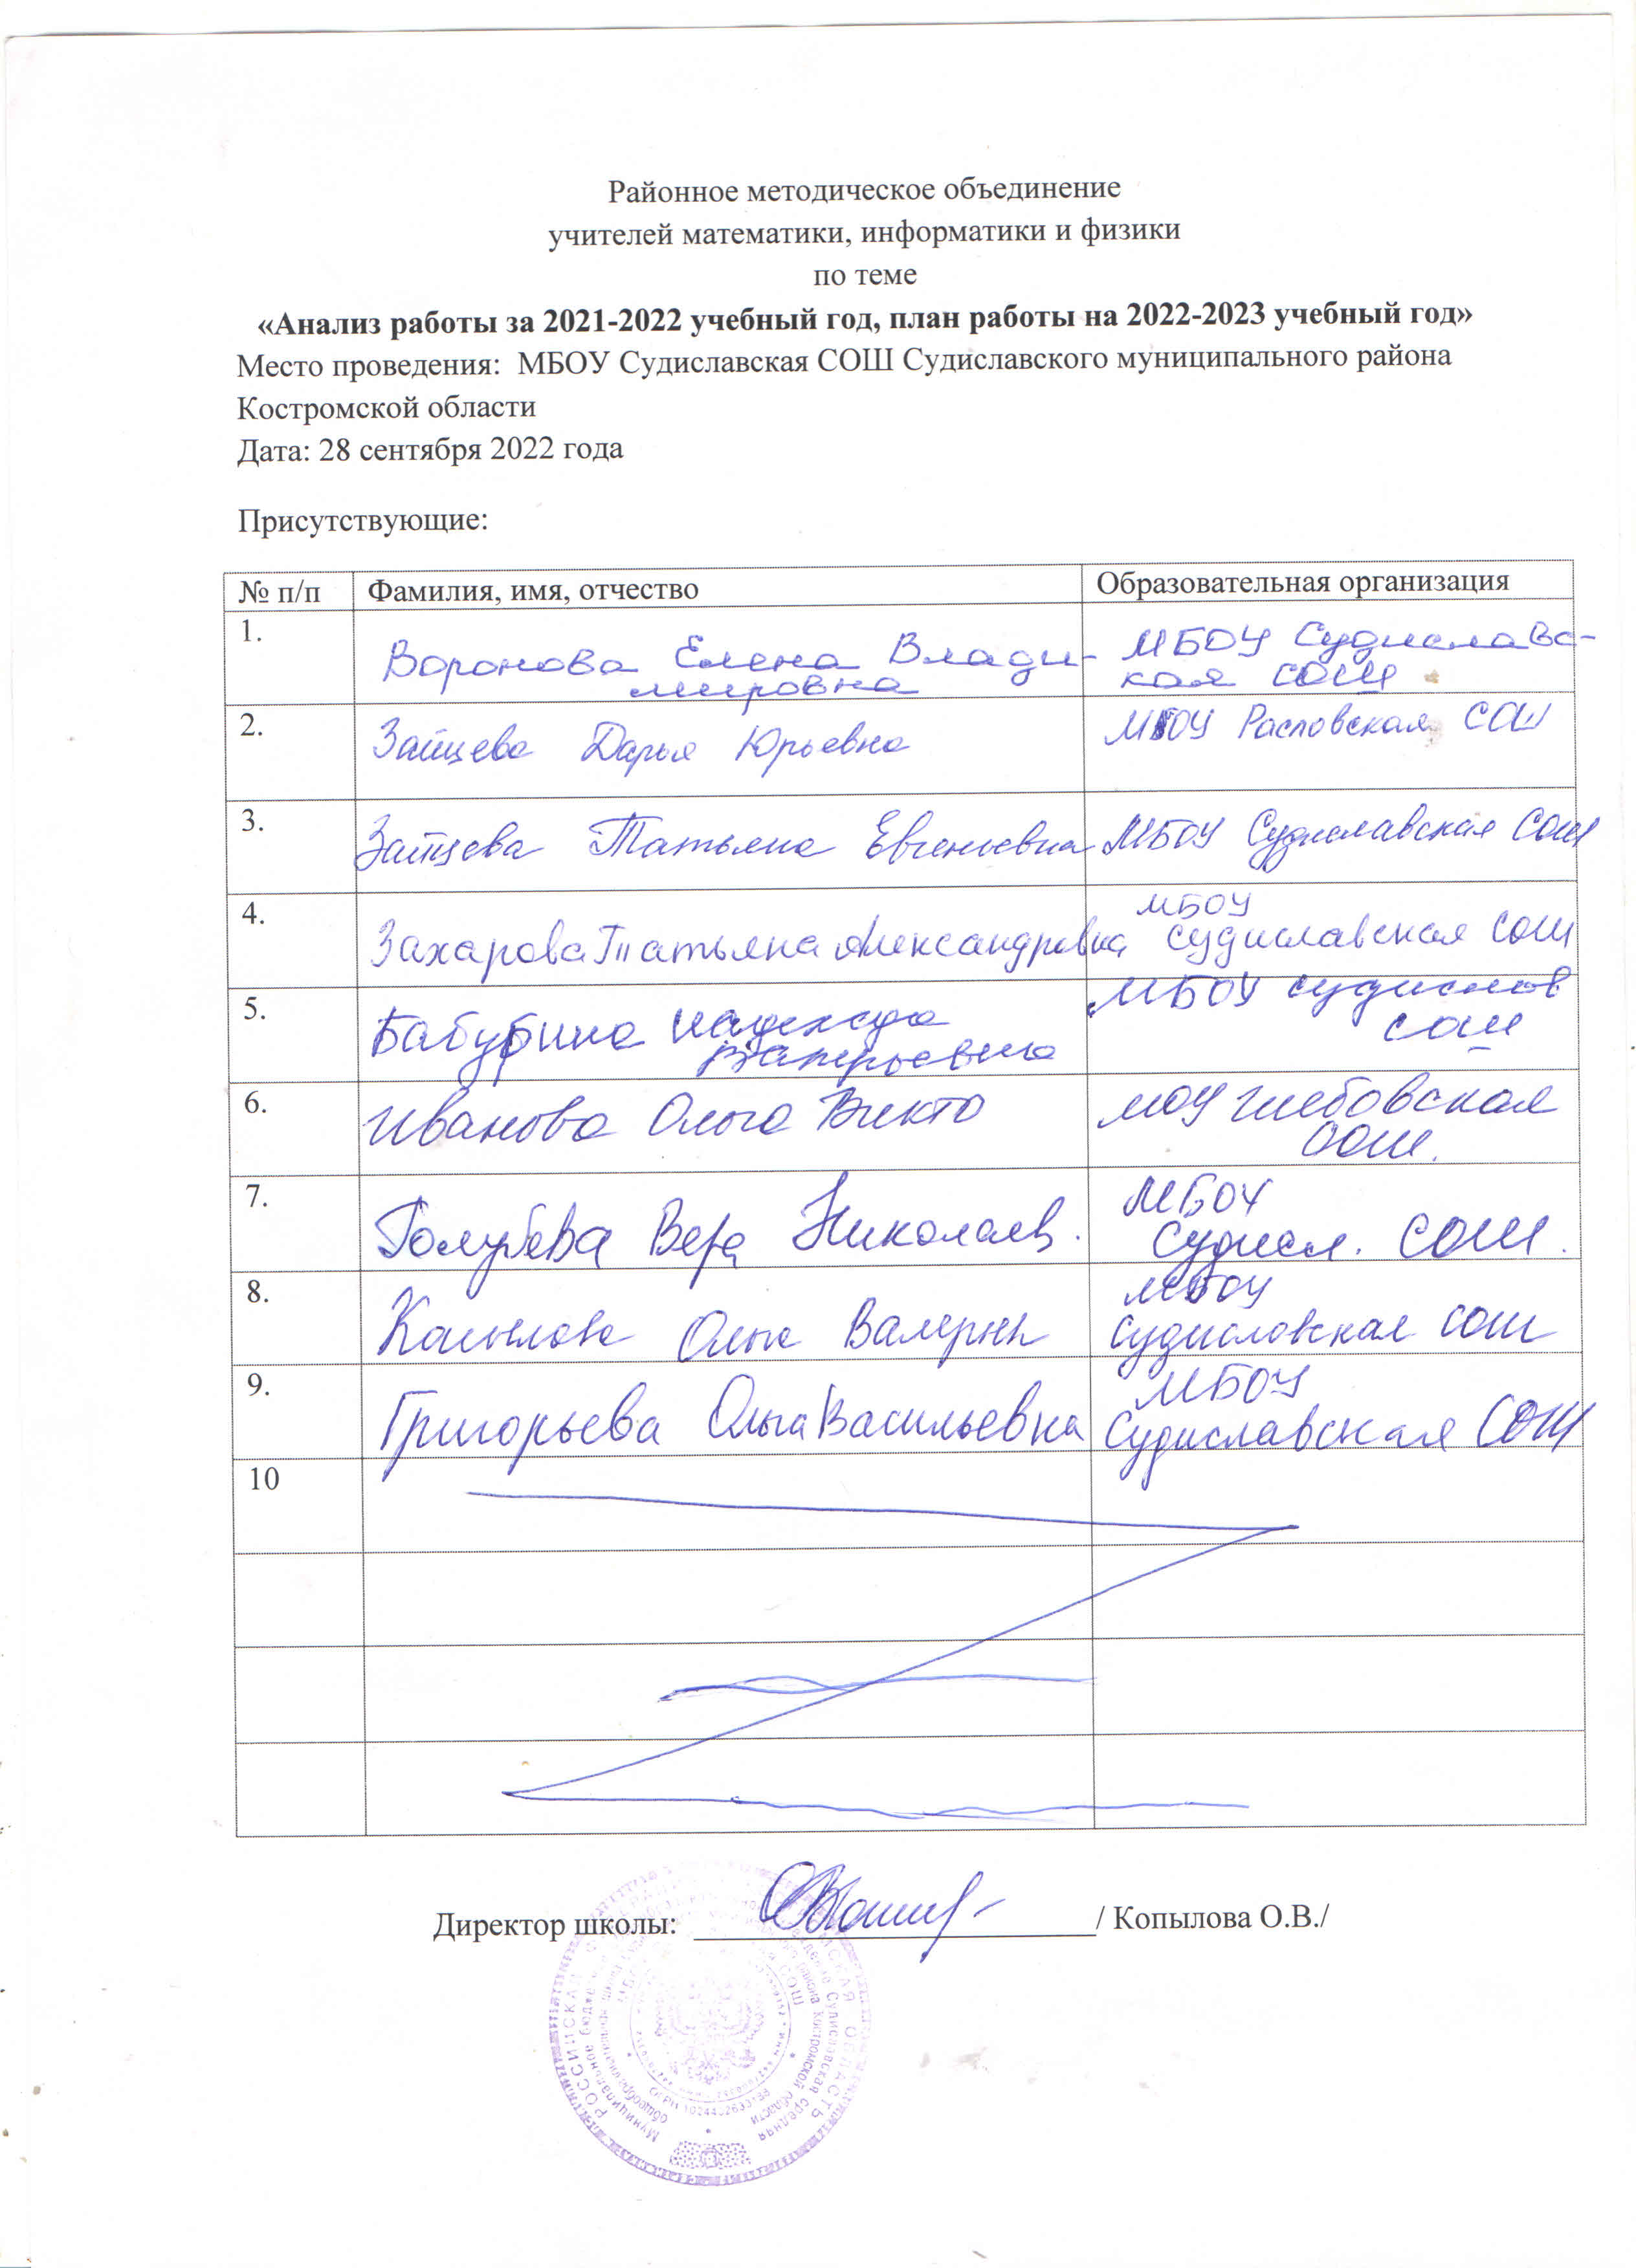 Районное методическое объединение
учителей математики, информатики и физики
по теме
«Анализ работы за 2021-2022 учебный год, план работы на 2022-2023 учебный год»
Место проведения: МБОУ Судиславская СОШ Судиславского муниципального района
Костромской области
Дата: 28 сентября 2022 года
Присутствующие:
№ п/п Фамилия, имя, отчество Образовательная организация
1. Воронова Елена Влади- МБОУ Судиславс-
мировна кая СОШ
2. Зайцева Дарья Юрьевна МБОУ Расловская СОШ
3. Зайцева Татьяна Евгеньевна МБОУ Судиславская СОШ
4. Захарова Татьяна Александровна МБОУ
Судиславская СОШ
5. Бабурина Надежда МБОУ Судислав
Валерьевна СОШ
6. Иванова Ольга Викто МОУ Глебовская
ООШ.
7. Голубева Вера Николаев. МБОУ
Судисл. СОШ.
8. Копылова Ольга Валерьев МБОУ
Судиславская СОШ
9. Григорьева Ольга Васильевна МБОУ
Судиславская СОШ
10
Директор школы: / Копылова О.В./